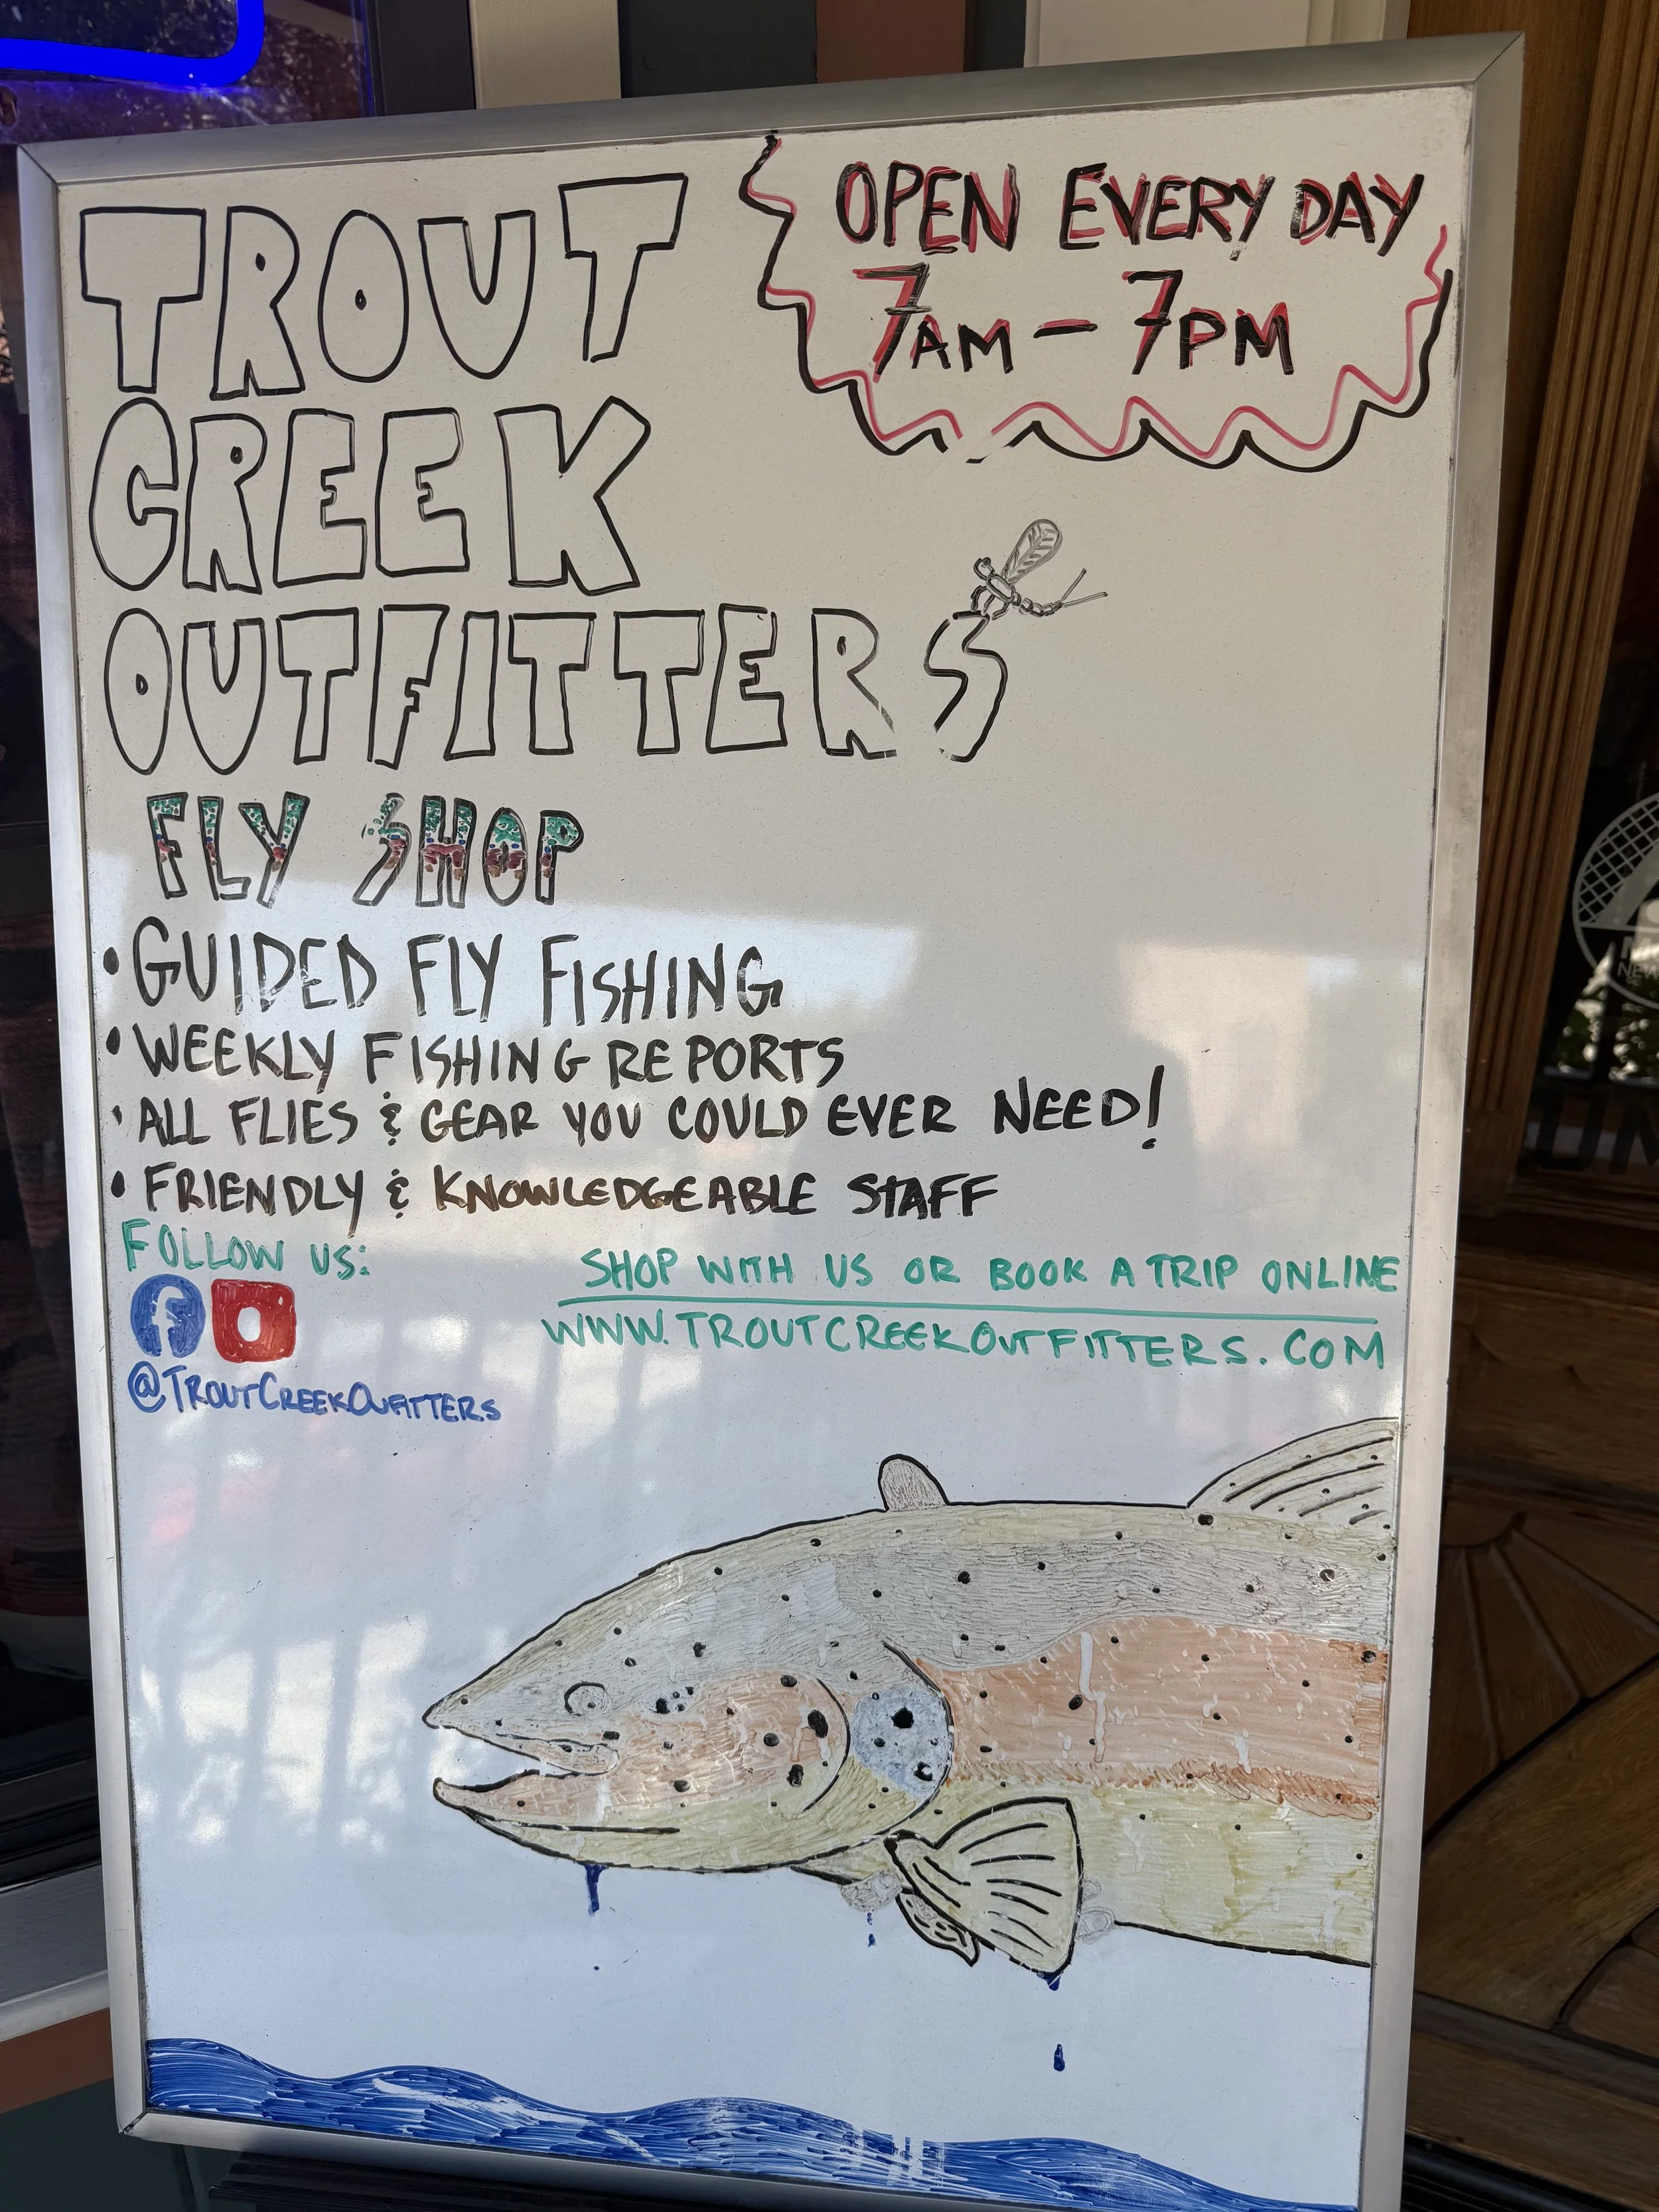 TROUT
CREEK
OUTFITTERS
OPEN EVERY DAY
7AM - 7PM
FLY SHOP
• GUIDED FLY FISHING
• WEEKLY FISHING REPORTS
• ALL FLIES & GEAR YOU COULD EVER NEED!
• FRIENDLY & KNOWLEDGEABLE STAFF
FOLLOW US:
f
@TROUTCREEKOUFITTERS
SHOP WITH US OR BOOK A TRIP ONLINE
WWW.TROUTCREEKOUTFITTERS.COM
NEW